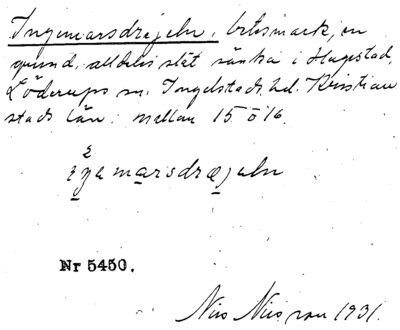 Ingemarsdrejeln, betesmark, en
grund, alldeles slät sänka i Hagestad,
Löderups sn. Ingelstads hd. Kristian
stads län. mellan 15 o 16.
ęŋemarsdræjeln
Nr 5450.
Nils Nilsson 1931.